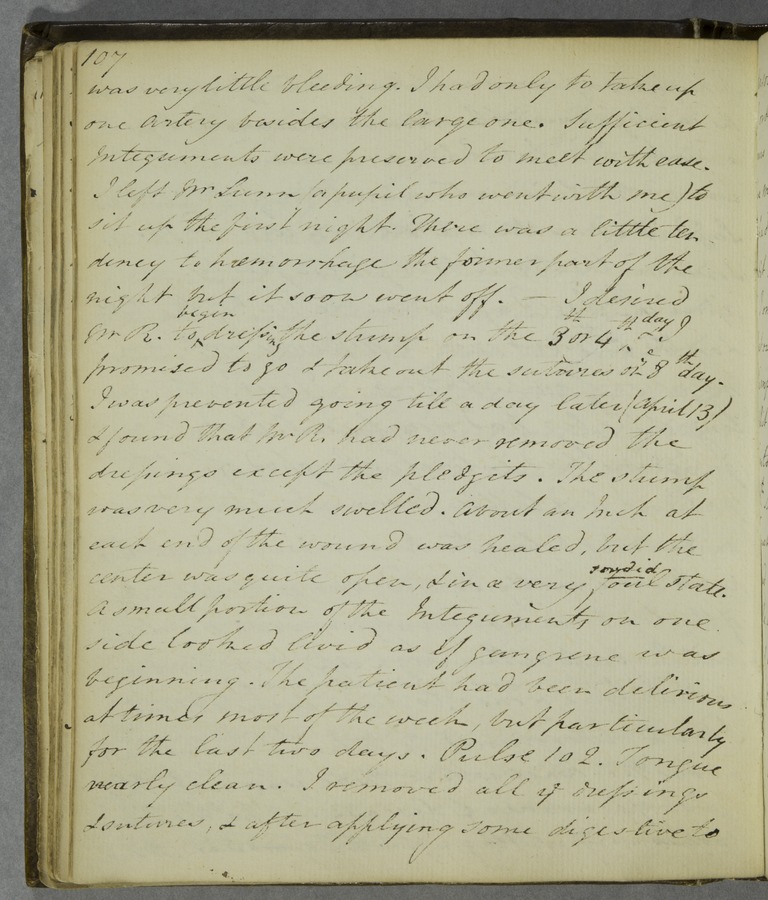 107
was very little bleeding. I had only to take up
one artery besides the large one. Sufficient
Integuments were preserved to meet with ease.
I left Mr Lunn (a pupil who went with me) to
sit up the first night. There was a little ten
dency to hæmorrhage the former part of the
night but it soon went off. — I desired
begin
Mr R. to dressing the stump on the 3th or 4th day I
promised to go & take out the sutures on ye 8th day.
I was prevented going till a day later (April 13)
& found that Mr R. had never removed the
dressings except the pledgits. The stump
was very much swelled. About an Inch at
each end of the wound was healed, but the
sordid
center was quite open, & in a very foul state.
A small portion of the Integuments on one
side looked livid as if gangrene was
beginning. The patient had been delirious
at times most of the week, but particularly
for the last two days. Pulse 102. Tongue
nearly clean. I removed all ye dressings
& sutures, & after applying some digestive to